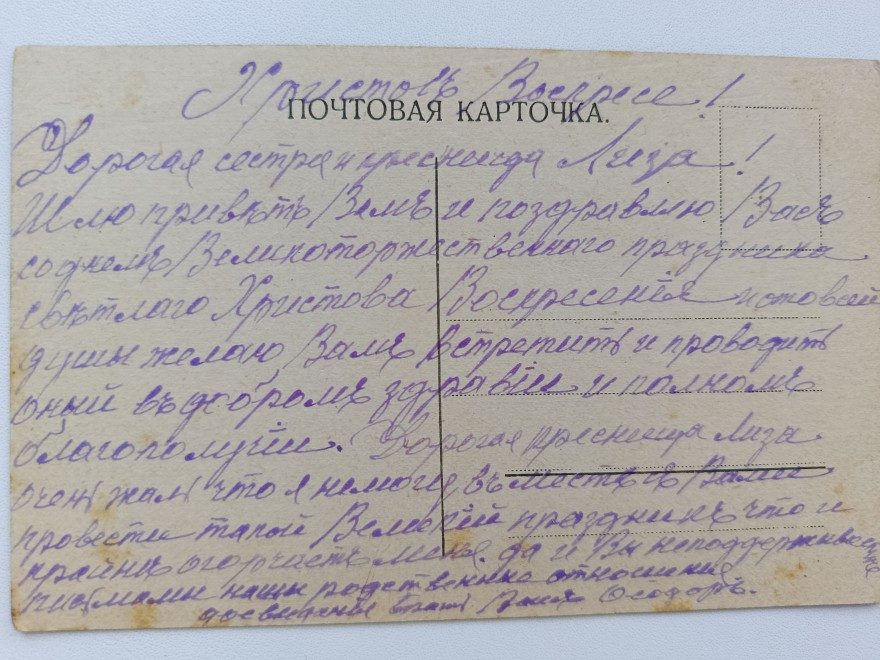 Христосъ Воскресе!
ПОЧТОВАЯ КАРТОЧКА.
Дорогая сестра и кресница Лиза!
Шлю привѣтъ Вамъ и поздравлю Васъ
со днемъ Великоторжественнаго праздника
свѣтлаго Христова Воскресенія и отовсей
души желаю Вамъ встретить и проводить
оный въ добромъ здравіи и полномъ
благополучіи. Дорогая кресница Лиза
очень жаль что я немогу въместѣ съ Вами
провести такой Великій праздникъ что и
крайнѣ огорчастъ меня. да и Вы неподдерживаете
письмами нашы родственные отношения
досвидание Вашъ Ѳеодоръ.